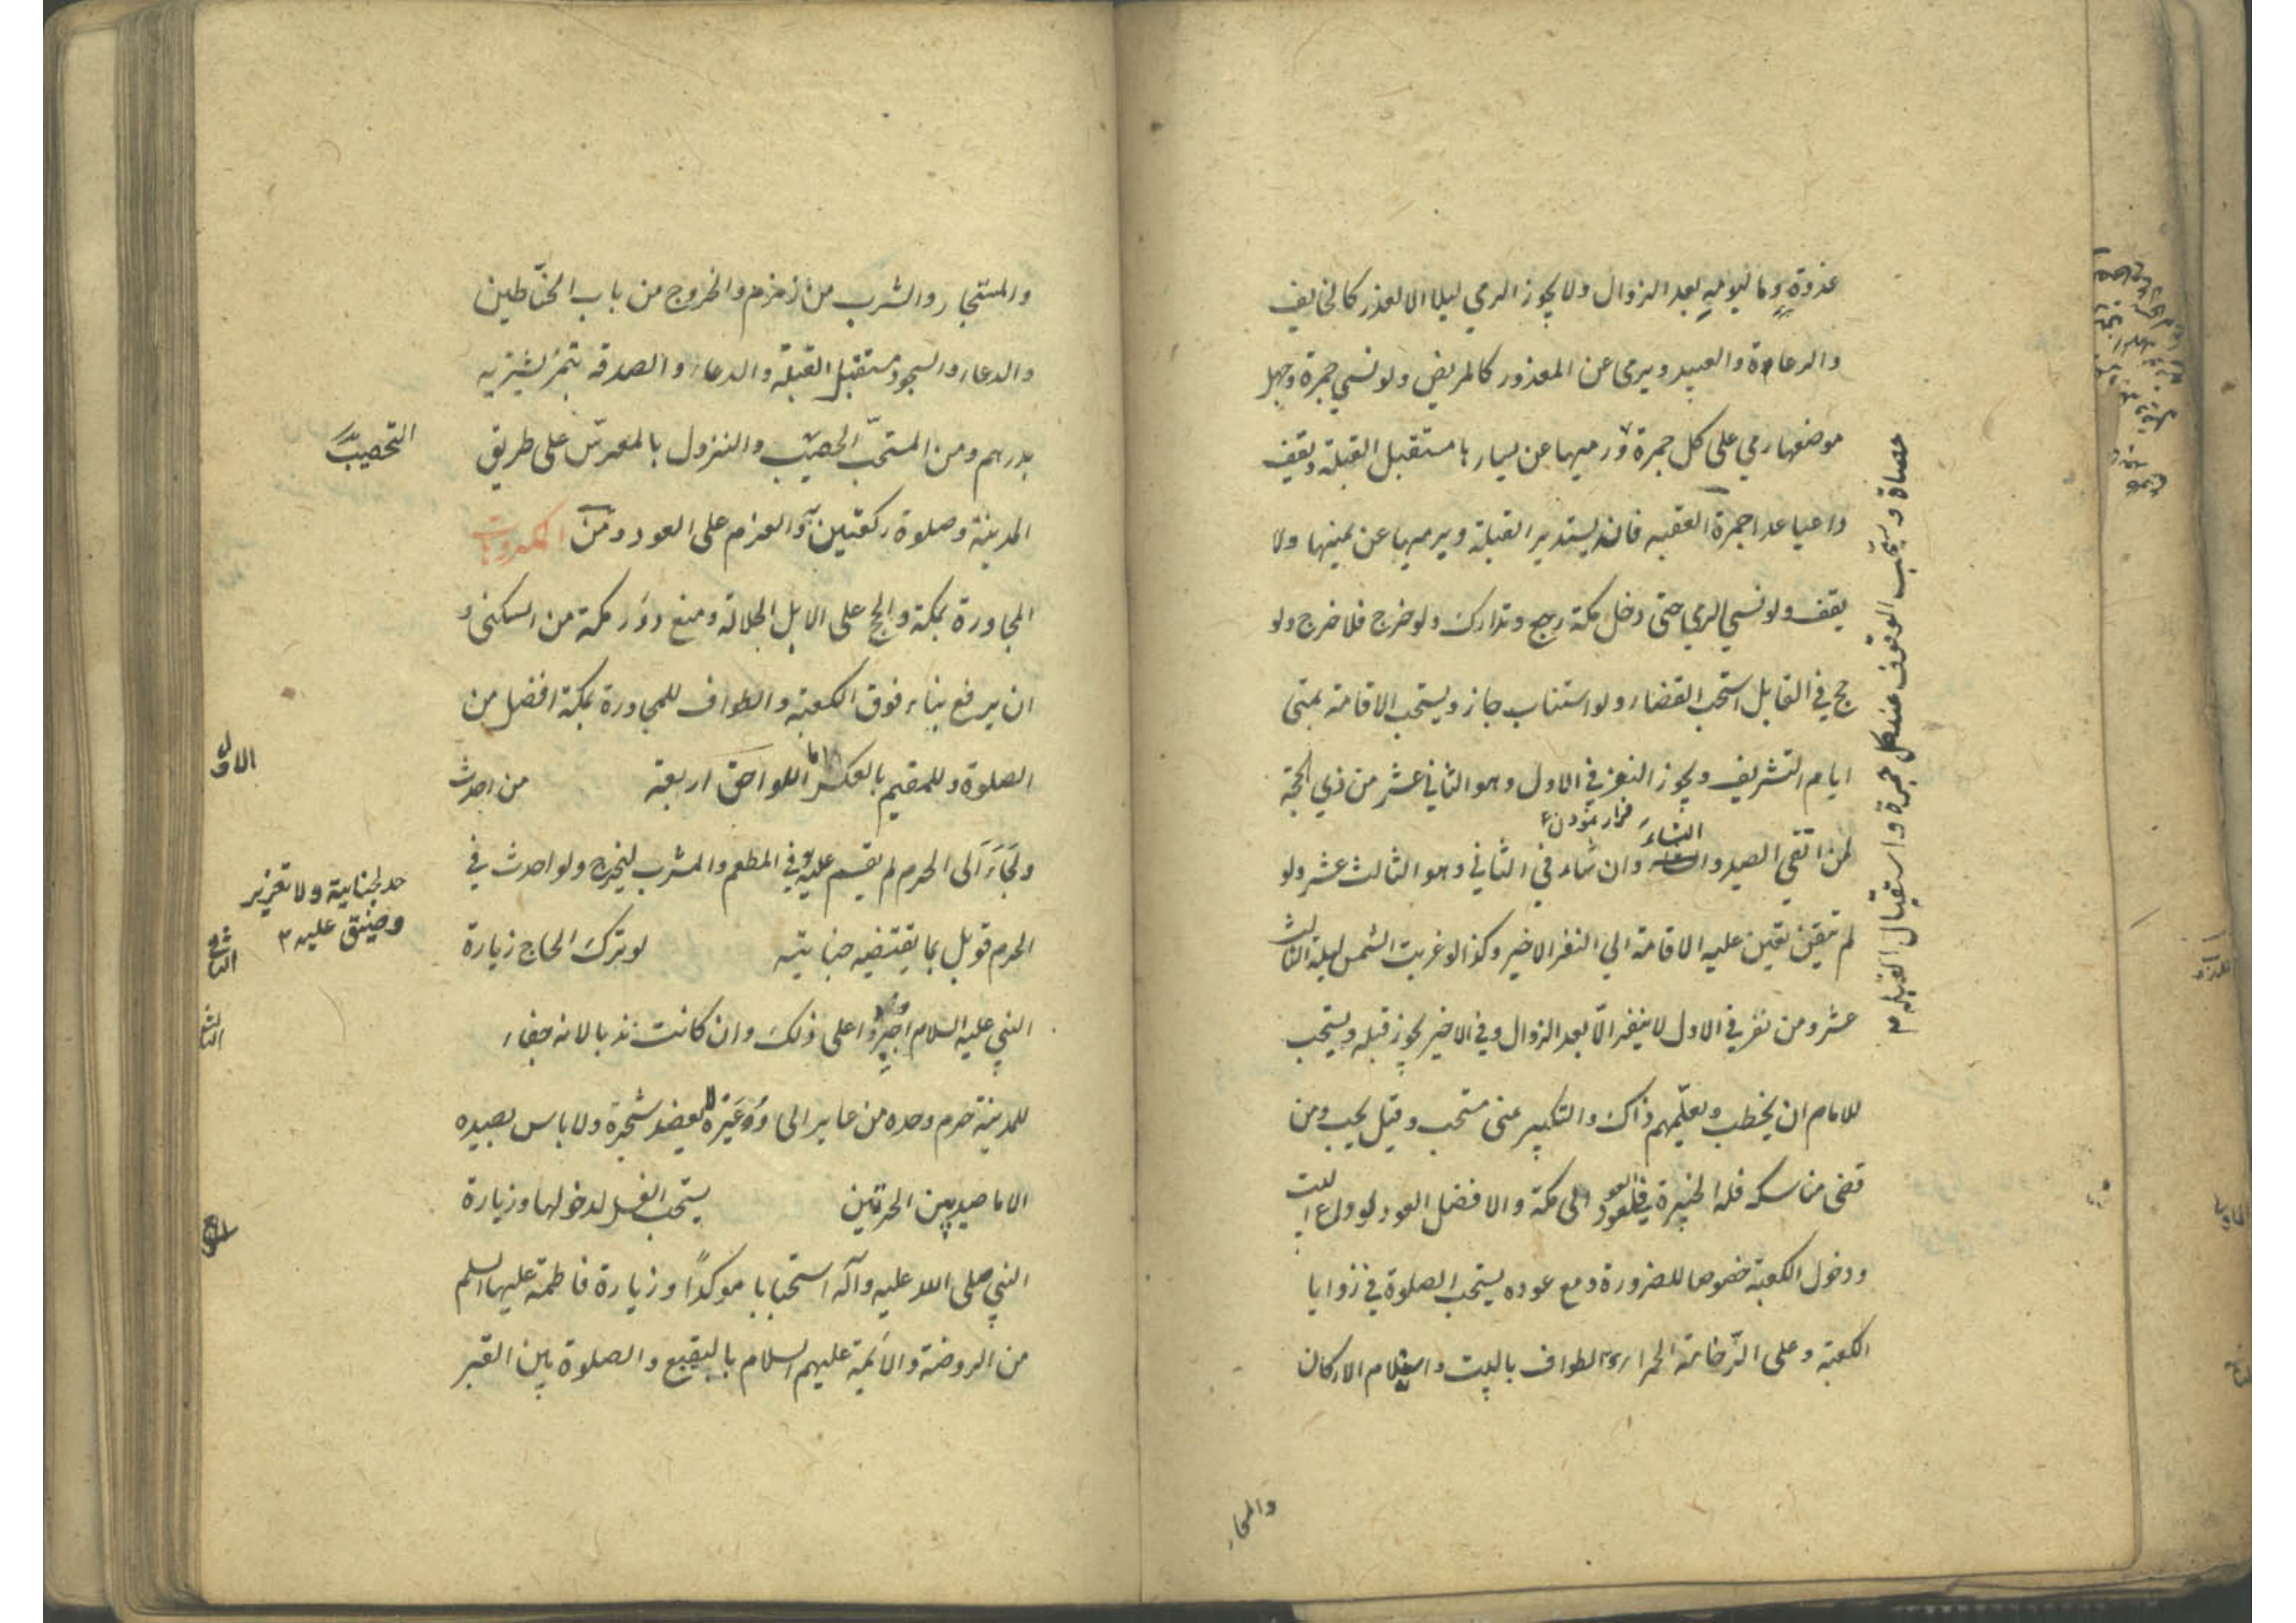 غدوة وما ليوميه بعد الزوال ولا يجوز الرمي ليلا الا لعذر كالخايف
والرعاة والعبيد ويرمى عن المعذور كالمريض ولو نسي جمرة وجهل
موضعها رمي على كل جمرة ورميها عن يسارها مستقبل القبلة ويقف
داعيا عدا جمرة العقبه فانه يستدبر القبلة ويرميها عن يمينها ولا
يقف ولو نسي الرمي حتى دخل مكة رجع وتدارك ولو خرج فلا خرج ولو
حج في القابل استحب القضاء ولو استناب جاز ويستحب الاقامة بمنى
ايام التشريف ويجوز النفر في الاول وهو الثاني عشر من ذي الحجة
النساء
لمن اتقى الصيد وان شاء في الثاني وهو الثالث عشر ولو
لم يتقين تعين عليه الاقامة الي النفر الاخير وكذا لو غربت الشمس ليلة الثالث
عشر ومن نفر في الاول لا ينفر الّا بعد الزوال وفي الاخير يجوز قبله ويستحب
للامام ان يخطب ويعلّمهم ذاك والتكبير بمنى مستحب وقيل يجب ومن
قضى مناسكه فله الخيرة في العود الى مكة والافضل العود لوداع البيت
ودخول الكعبة خصوصا للصرورة ومع عوده يستحب الصلوة في زوايا
الكعبة وعلى الرّخامة الحمراء والطواف بالبيت واستلام الاركان
حصاة ويستحب الوقوف عند كل جمرة واستقبال القبله م
والمستجار
والمستجار والشرب من زمزم والخروج من باب الحنّاطين
والدعاء والسجود مستقبل القبلة والدعاء والصدقة بتمر يشتريه
بدرهم ومن المستحبّ الحصيب والنزول بالمعرس على طريق
التحصيب
المدينة وصلوة ركعتين به والعزم على العود ومن المكروهات
المجاورة بمكة والحج على الابل الجلالة ومنع دور مكة من السكنى و
ان يرفع بناء فوق الكعبة والطواف للمجاورة بمكة افضل من
الصلوة وللمقيم بالعكس اما اللواحق اربعة من احدث
الاول
ولجاء الى الحرم لم يقسم عليه في المطعم والمشرب ليخرج ولو احدث في
حد لجناية ولا تعزير
وضيق عليه م
الحرم قوبل بما يقتضيه جنايته لو ترك الحاج زيارة
الثاني
النبي عليه السلام اجبروا على ذلك وان كانت ندبا لانه جفاء
الثالث
للمدينة حرم وحده من عاير الى وُعَيْرة لا يعضد شجرة ولا باس بصيده
الا ما صيد بين الحرتين يستحب الغسل لدخولها وزيارة
النبي صلى الله عليه وآله استحبابا موكدًا وزيارة فاطمة عليها السلم
من الروضة والائمة عليهم السلام بالبقيع والصلوة بين القبر